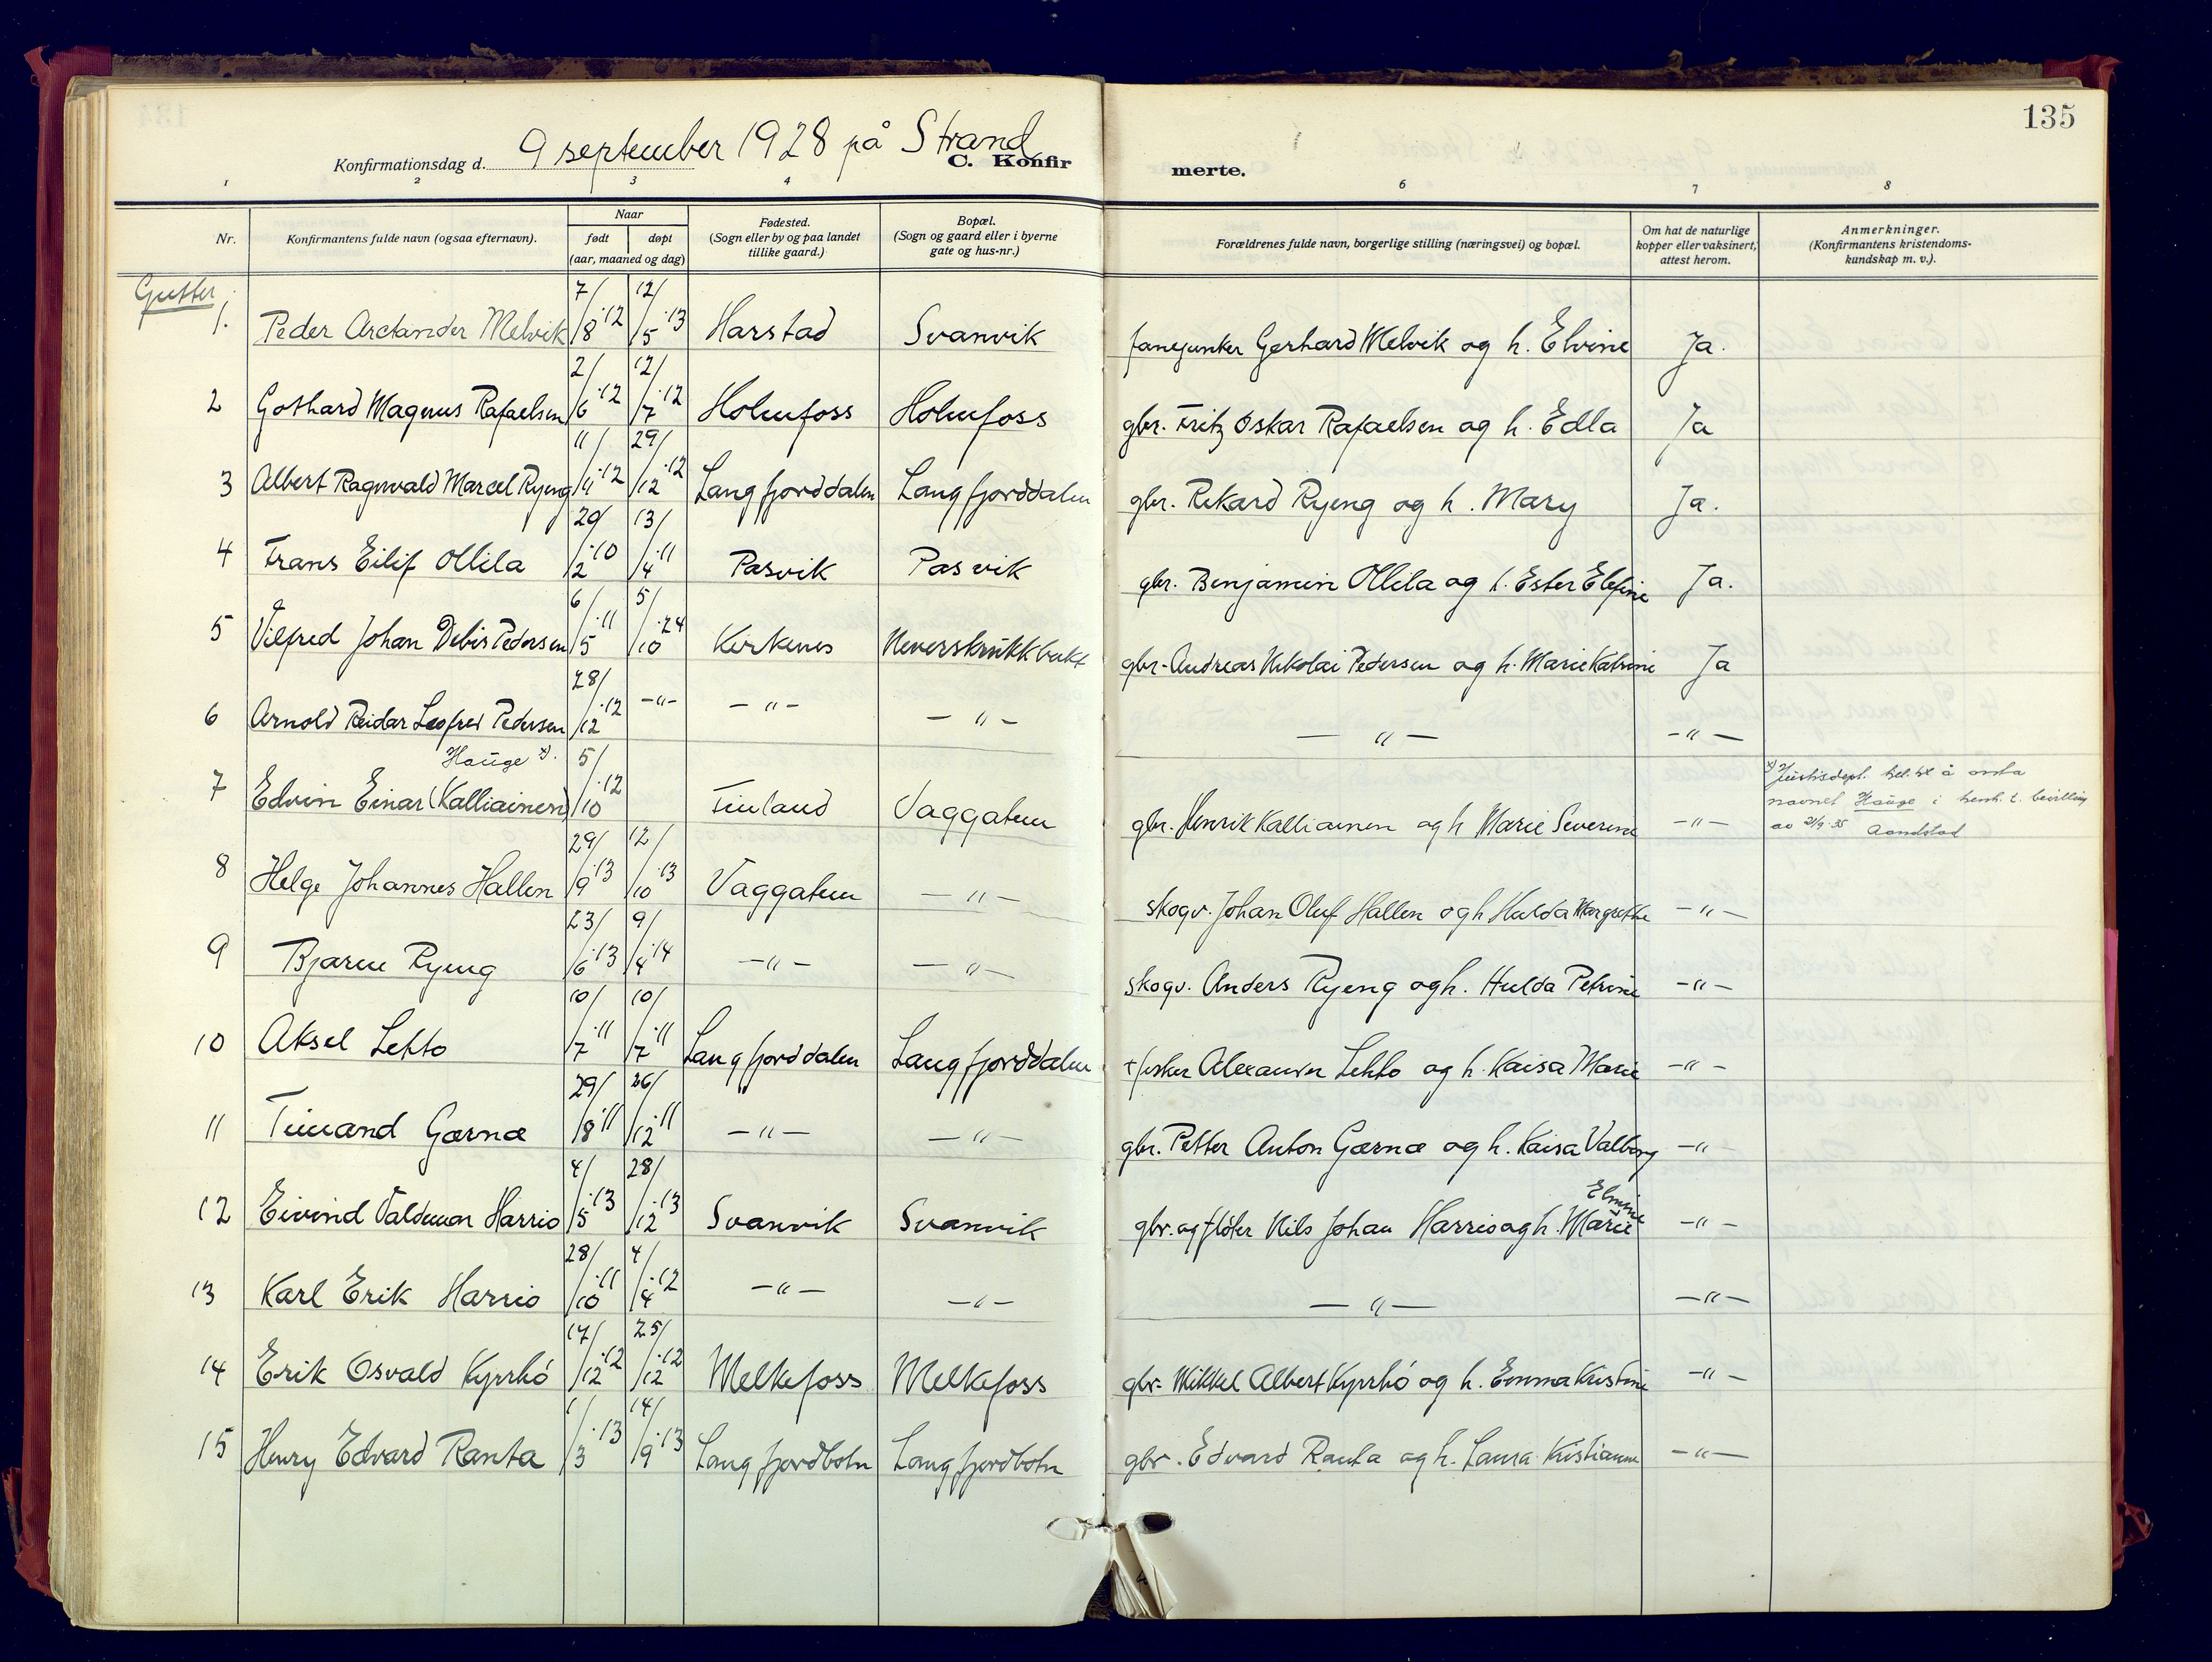 135
Konfirmationsdag d. 9 september 1928 på Strand
C. Konfirmerte.
1 2 3 4 6 7 8
Nr. Konfirmantens fulde navn (ogsaa efternavn). Naar født døpt (aar, maaned og dag) Fødested. (Sogn eller by og paa landet tillike gaard.) Bopæl. (Sogn og gaard eller i byerne gate og hus-nr.) Forældrenes fulde navn, borgerlige stilling (næringsvei) og bopæl. Om hat de naturlige kopper eller vaksinert, attest herom. Anmerkninger. (Konfirmantens kristendomskundskap m. v.).
Gutter
1. Peder Arctander Melvik 7/8 '12 12/5 '13 Harstad Svanvik fanejunker Gerhard Melvik og h. Elvine Ja.
2 Gothard Magnus Rafaelsen 2/6 '12 12/7 '12 Holmfoss Holmfoss gbr. Fritz Oskar Rafaelsen og h. Edla Ja
3 Albert Ragnvald Marcel Ryeng 11/4 '12 29/12 '12 Langfjorddalen Langfjorddalen gbr. Rikard Ryeng og h. Mary Ja.
4 Frans Eilif Ollila 29/2 '10 13/4 '11 Pasvik Pasvik gbr. Benjamin Ollila og h. Ester Elefine Ja.
5 Vilfred Johan Debis Pedersen 6/5 '11 5/10 '24 Kirkenes Neverskrukkbukt gbr. Andreas Nikolai Pedersen og h. Marie Katrine Ja
6 Arnold Reidar Leofred Pedersen 28/12 '12 -"- -"- -"- -"- -"-
Hauge x).
7 Edvin Einar (Kalliainen) 5/10 '12 Finland Vaggatem gbr. Henrik Kalliainen og h Marie Severine -"- x) Justisdept. till. til å anta navnet Hauge i henh. t. bevilling av 21/9 35 Aandstad
8 Helge Johannes Hallen 29/9 '13 12/10 '13 Vaggatem -"- skogv. Johan Oluf Hallen og h Hulda Margrethe -"-
9 Bjarne Ryeng 23/6 '13 9/4 '14 -"- -"- skogv. Anders Ryeng og h. Hulda Petrine -"-
10 Aksel Lehto 10/7 '11 10/7 '11 Langfjorddalen Langfjorddalen + fisker Alexander Lehto og h. Kaisa Marie -"-
11 Timand Gærnæ 29/8 '11 26/12 '11 -"- -"- gbr. Petter Anton Gærnæ og h. Kaisa Valborg -"-
12 Eivind Valdemar Harrio 4/5 '13 28/12 '13 Svanvik Svanvik gbr. og fløter Nils Johan Harrio og h. Elmine Marie -"-
13 Karl Erik Harrio 28/10 '11 4/4 '12 -"- -"- -"- -"-
14 Erik Osvald Kyrrhó 17/12 '12 25/12 '12 Melkefoss Melkefoss gbr. Mikkel Albert Kyrrhó og h. Emma Kristine -"-
15 Henry Edvard Ranta 1/3 '13 14/9 '13 Langfjordbotn Langfjordbotn gbr. Edvard Ranta og h. Laura Kristianne -"-